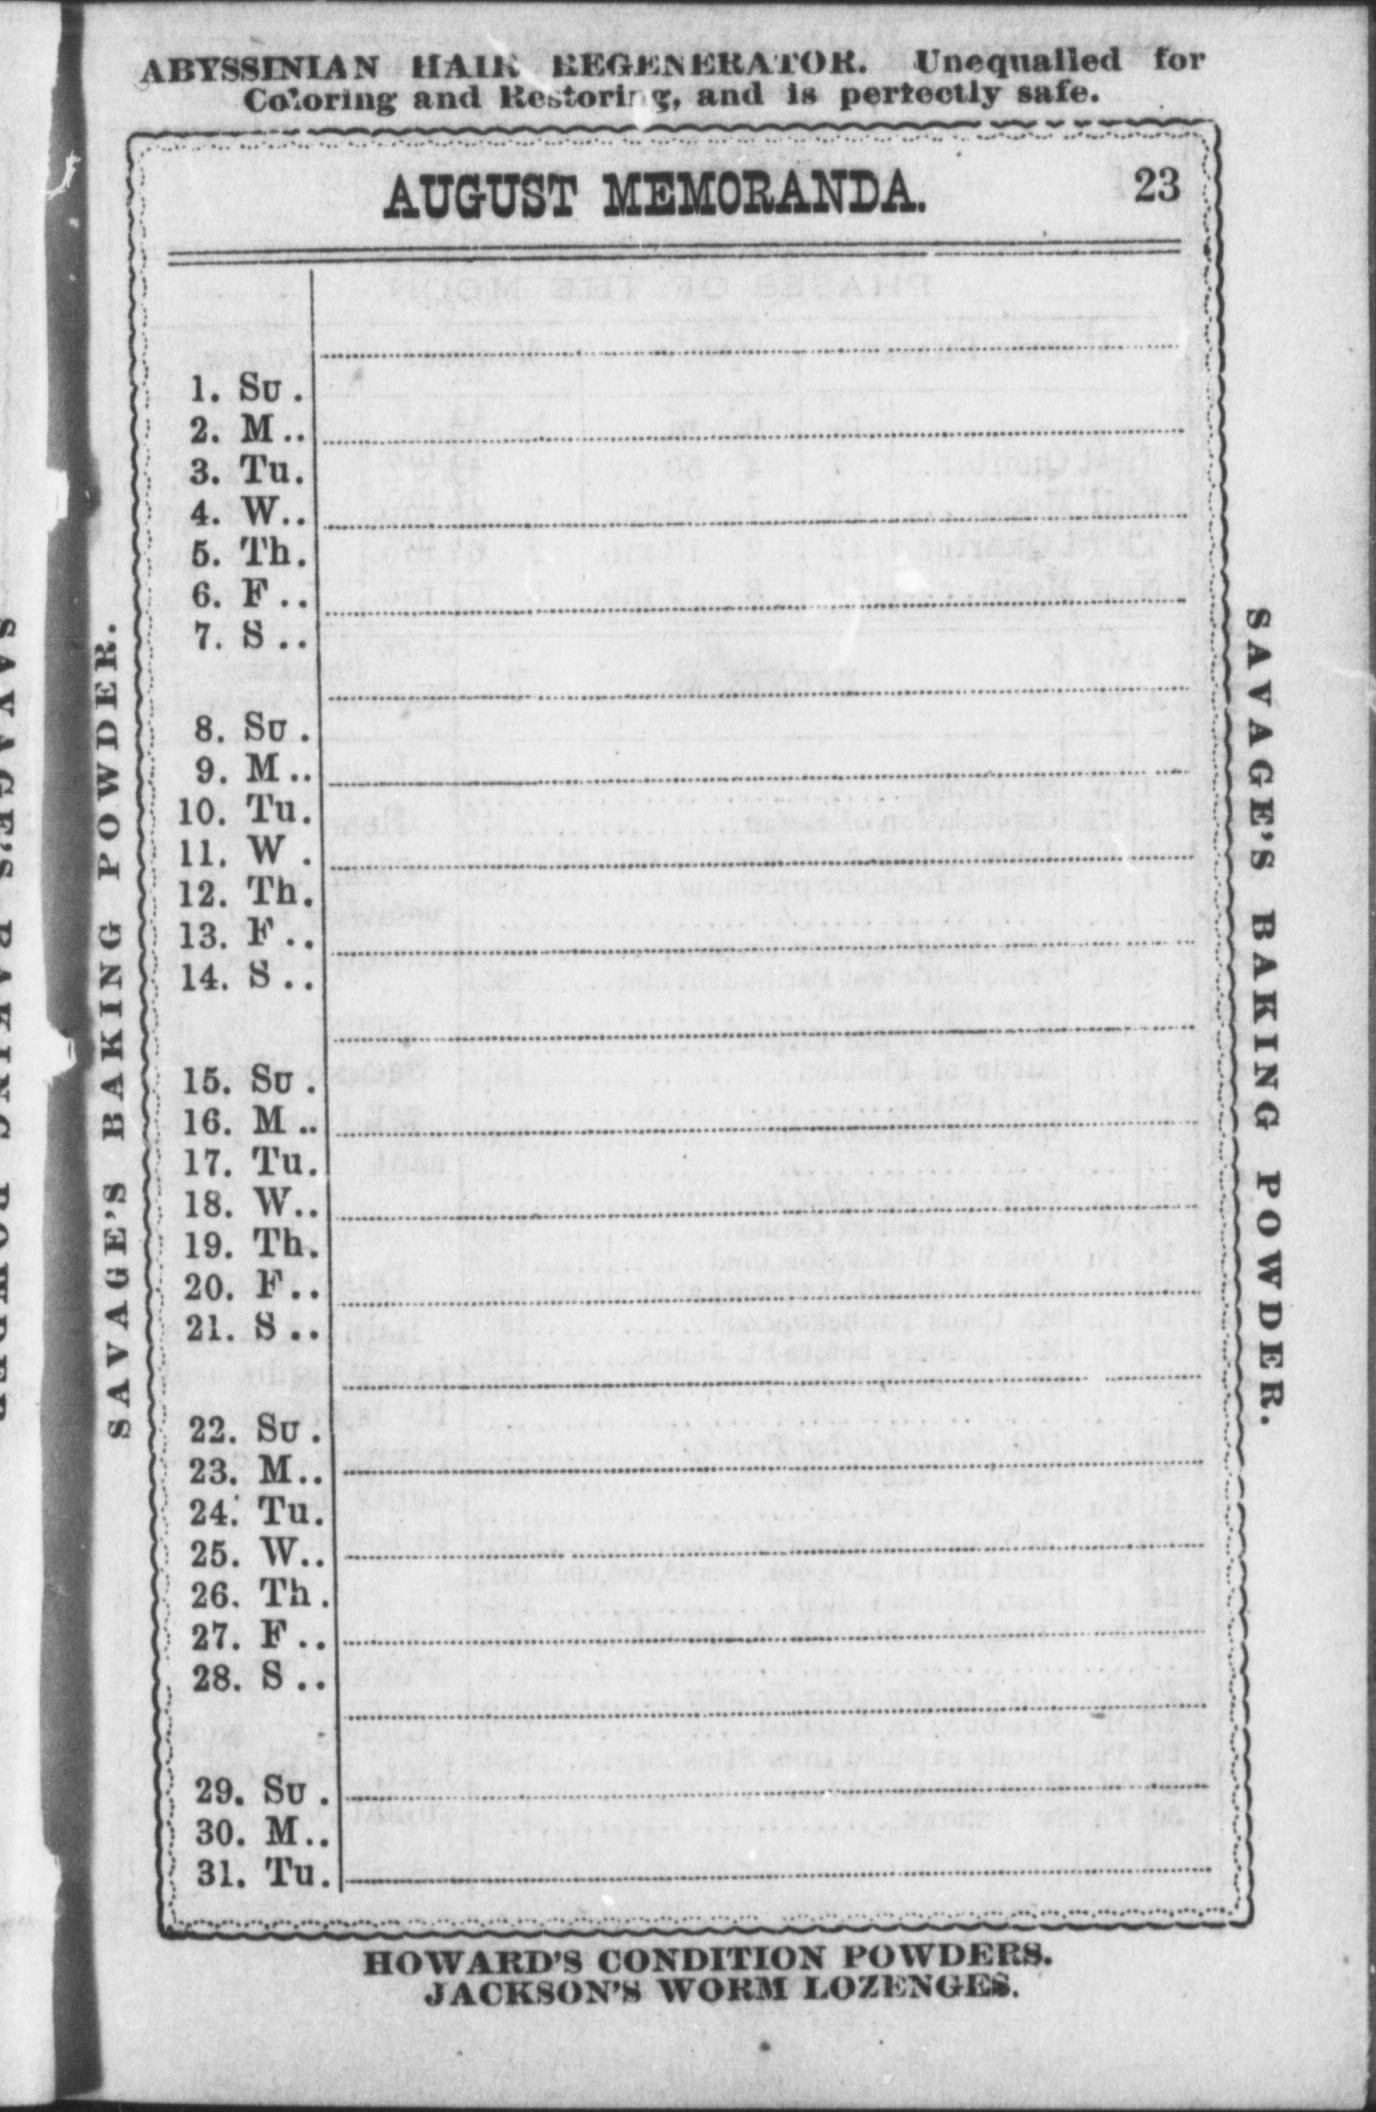 ABYSSINIAN HAIR REGENERATOR. Unequalled for
Coloring and Restoring, and is perfectly safe.
AUGUST MEMORANDA. 23
1. Su .
2. M ..
3. Tu.
4. W..
5. Th.
6. F ..
7. S ..
8. Su .
9. M ..
10. Tu.
11. W .
12. Th.
13. F ..
14. S ..
15. Su .
16. M ..
17. Tu.
18. W..
19. Th.
20. F ..
21. S ..
22. Su .
23. M..
24. Tu.
25. W..
26. Th.
27. F ..
28. S ..
29. Su .
30. M..
31. Tu.
SAVAGE'S BAKING POWDER.
SAVAGE'S BAKING POWDER.
HOWARD'S CONDITION POWDERS.
JACKSON'S WORM LOZENGES.